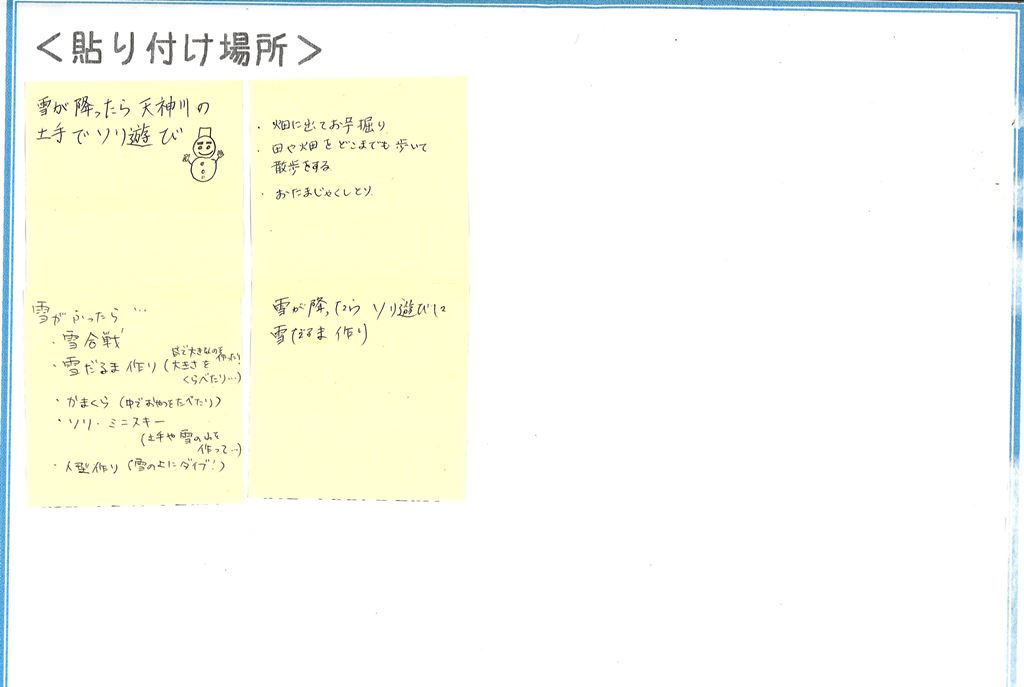 ＜貼り付け場所＞
雪が降ったら天神川の
土手でソリ遊び
・畑に出てお芋掘り
・田や畑をどこまでも歩いて
散歩をする
・おたまじゃくしとり
雪がふったら…
・雪合戦
・雪だるま作り(皆で大きなのを作ったり!
大きさを
くらべたり…)
・かまくら(中でおやつをたべたり)
・ソリ・ミニスキー
(土手や雪の山を
作って…)
・人型作り(雪の上にダイブ!)
雪が降ったらソリ遊びに
雪だるま作り